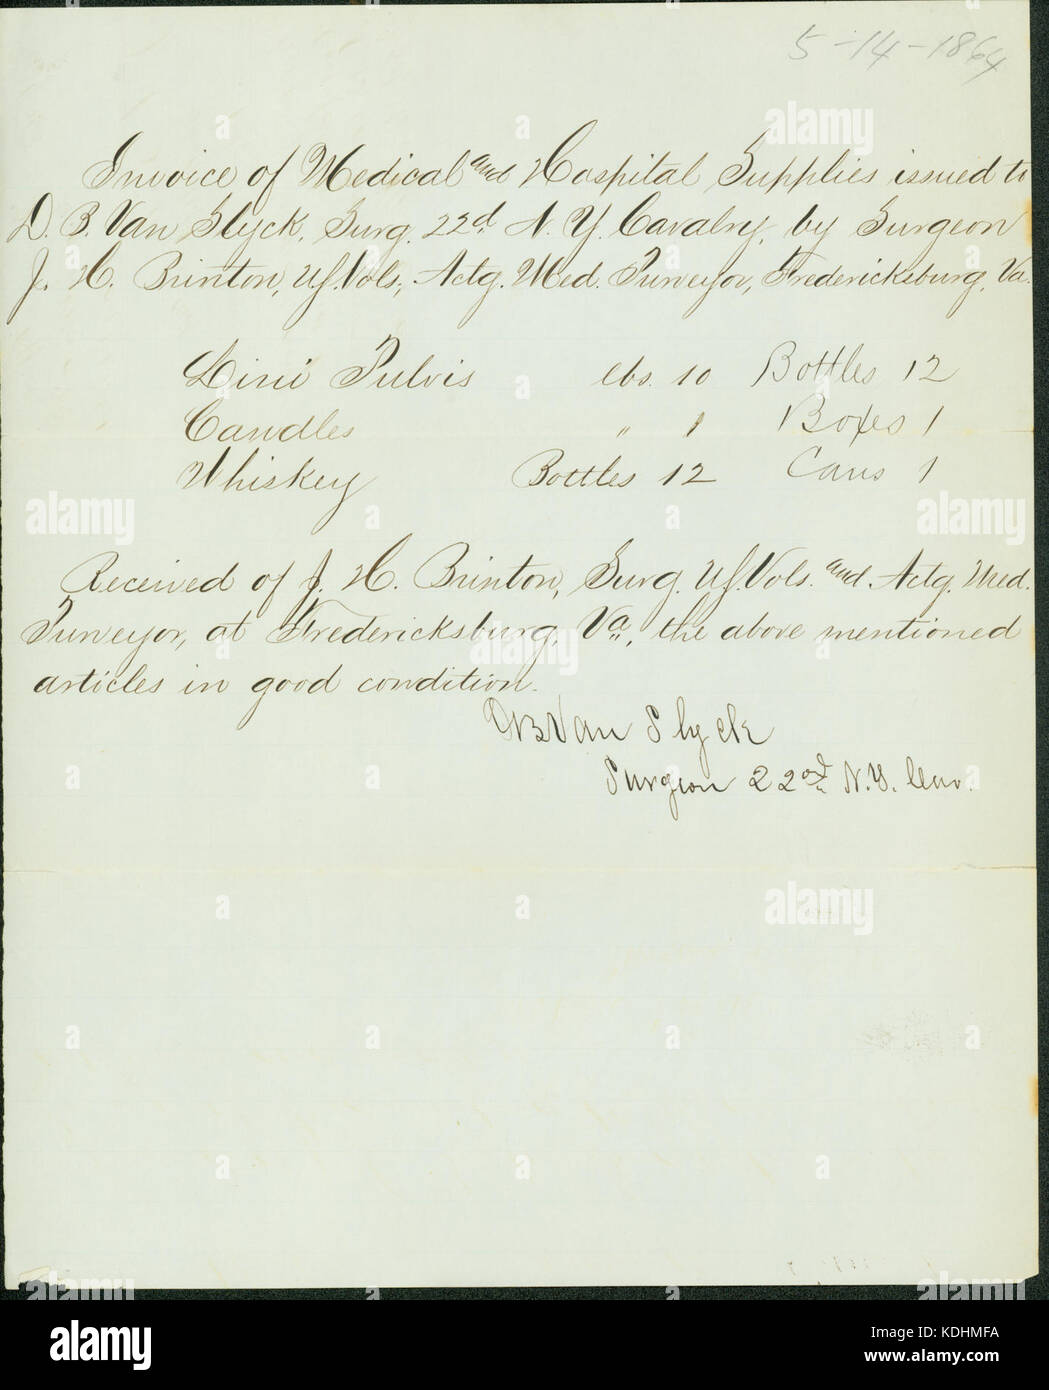 5-14-1864
Invoice of Medical and Hospital Supplies issued to
D. B. Van Slyck, Surg. 22d N. Y. Cavalry, by Surgeon
J. H. Brinton, U.S. Vols., Actg. Med. Purveyor, Fredericksburg, Va.
Lini Pulvis lbs. 10 Bottles 12
Candles " 1 Boxes 1
Whiskey Bottles 12 Cans 1
Received of J. H. Brinton, Surg. U.S. Vols. and Actg. Med.
Purveyor, at Fredericksburg, Va., the above mentioned
articles in good condition.
DB Van Slyck
Surgeon 22nd N.Y. Cav.
alamy
alamy
alamy
alamy
alamy
alamy
alamy
Image ID: KDHMFA
www.alamy.com